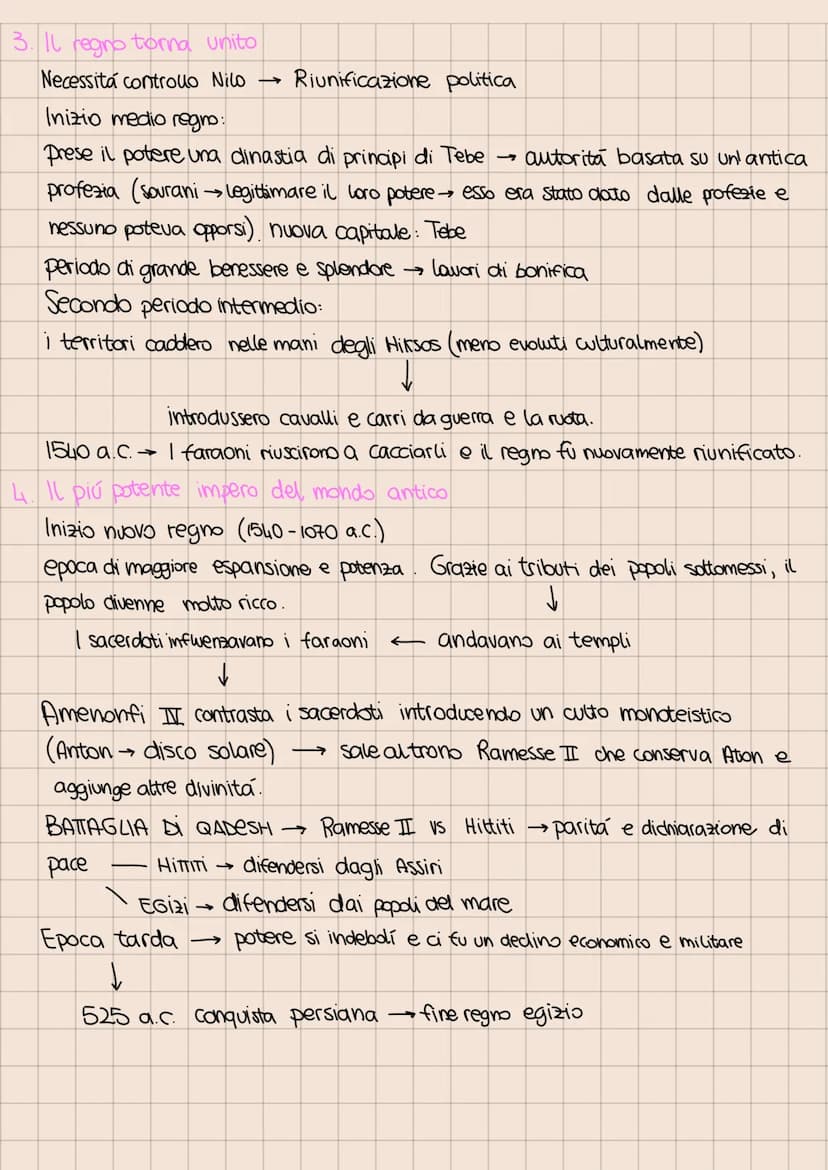 3. Il regno torna unito
Necessitá controllo Nilo → Riunificazione politica
Inizio medio regno:
Prese il potere una dinastia di principi di Tebe → autoritá basata su un'antica
profezia (sovrani → legittimare il loro potere → esso era stato dato dalle profezie e
nessuno poteva opporsi). nuova capitale: Tebe
periodo di grande benessere e splendore → lavori di bonifica
Secondo periodo intermedio:
i territori caddero nelle mani degli Hiksos (meno evoluti culturalmente)
↓
introdussero cavalli e carri da guerra e la ruota.
1540 a.C. → I faraoni riuscirono a cacciarli e il regno fú nuovamente riunificato.
4. Il piú potente impero del mondo antico
Inizio nuovo regno (1540 - 1070 a.C.)
epoca di maggiore espansione e potenza. Grazie ai tributi dei popoli sottomessi, il
popolo divenne molto ricco. ↓
I sacerdoti influenzavano i faraoni ← andavano ai templi
↓
Amenonfi IV contrasta i sacerdoti introducendo un culto monoteistico
(Anton → disco solare) → sale al trono Ramesse II che conserva Aton e
aggiunge altre divinitá.
BATTAGLIA DI QADESH → Ramesse II vs Hittiti → paritá e dichiarazione di
pace — HITTITI → difendersi dagli Assiri
\ EGIZI → difendersi dai popoli del mare
Epoca tarda → potere si indebolí e ci fu un declino economico e militare
↓
525 a.C. conquista persiana → fine regno egizio